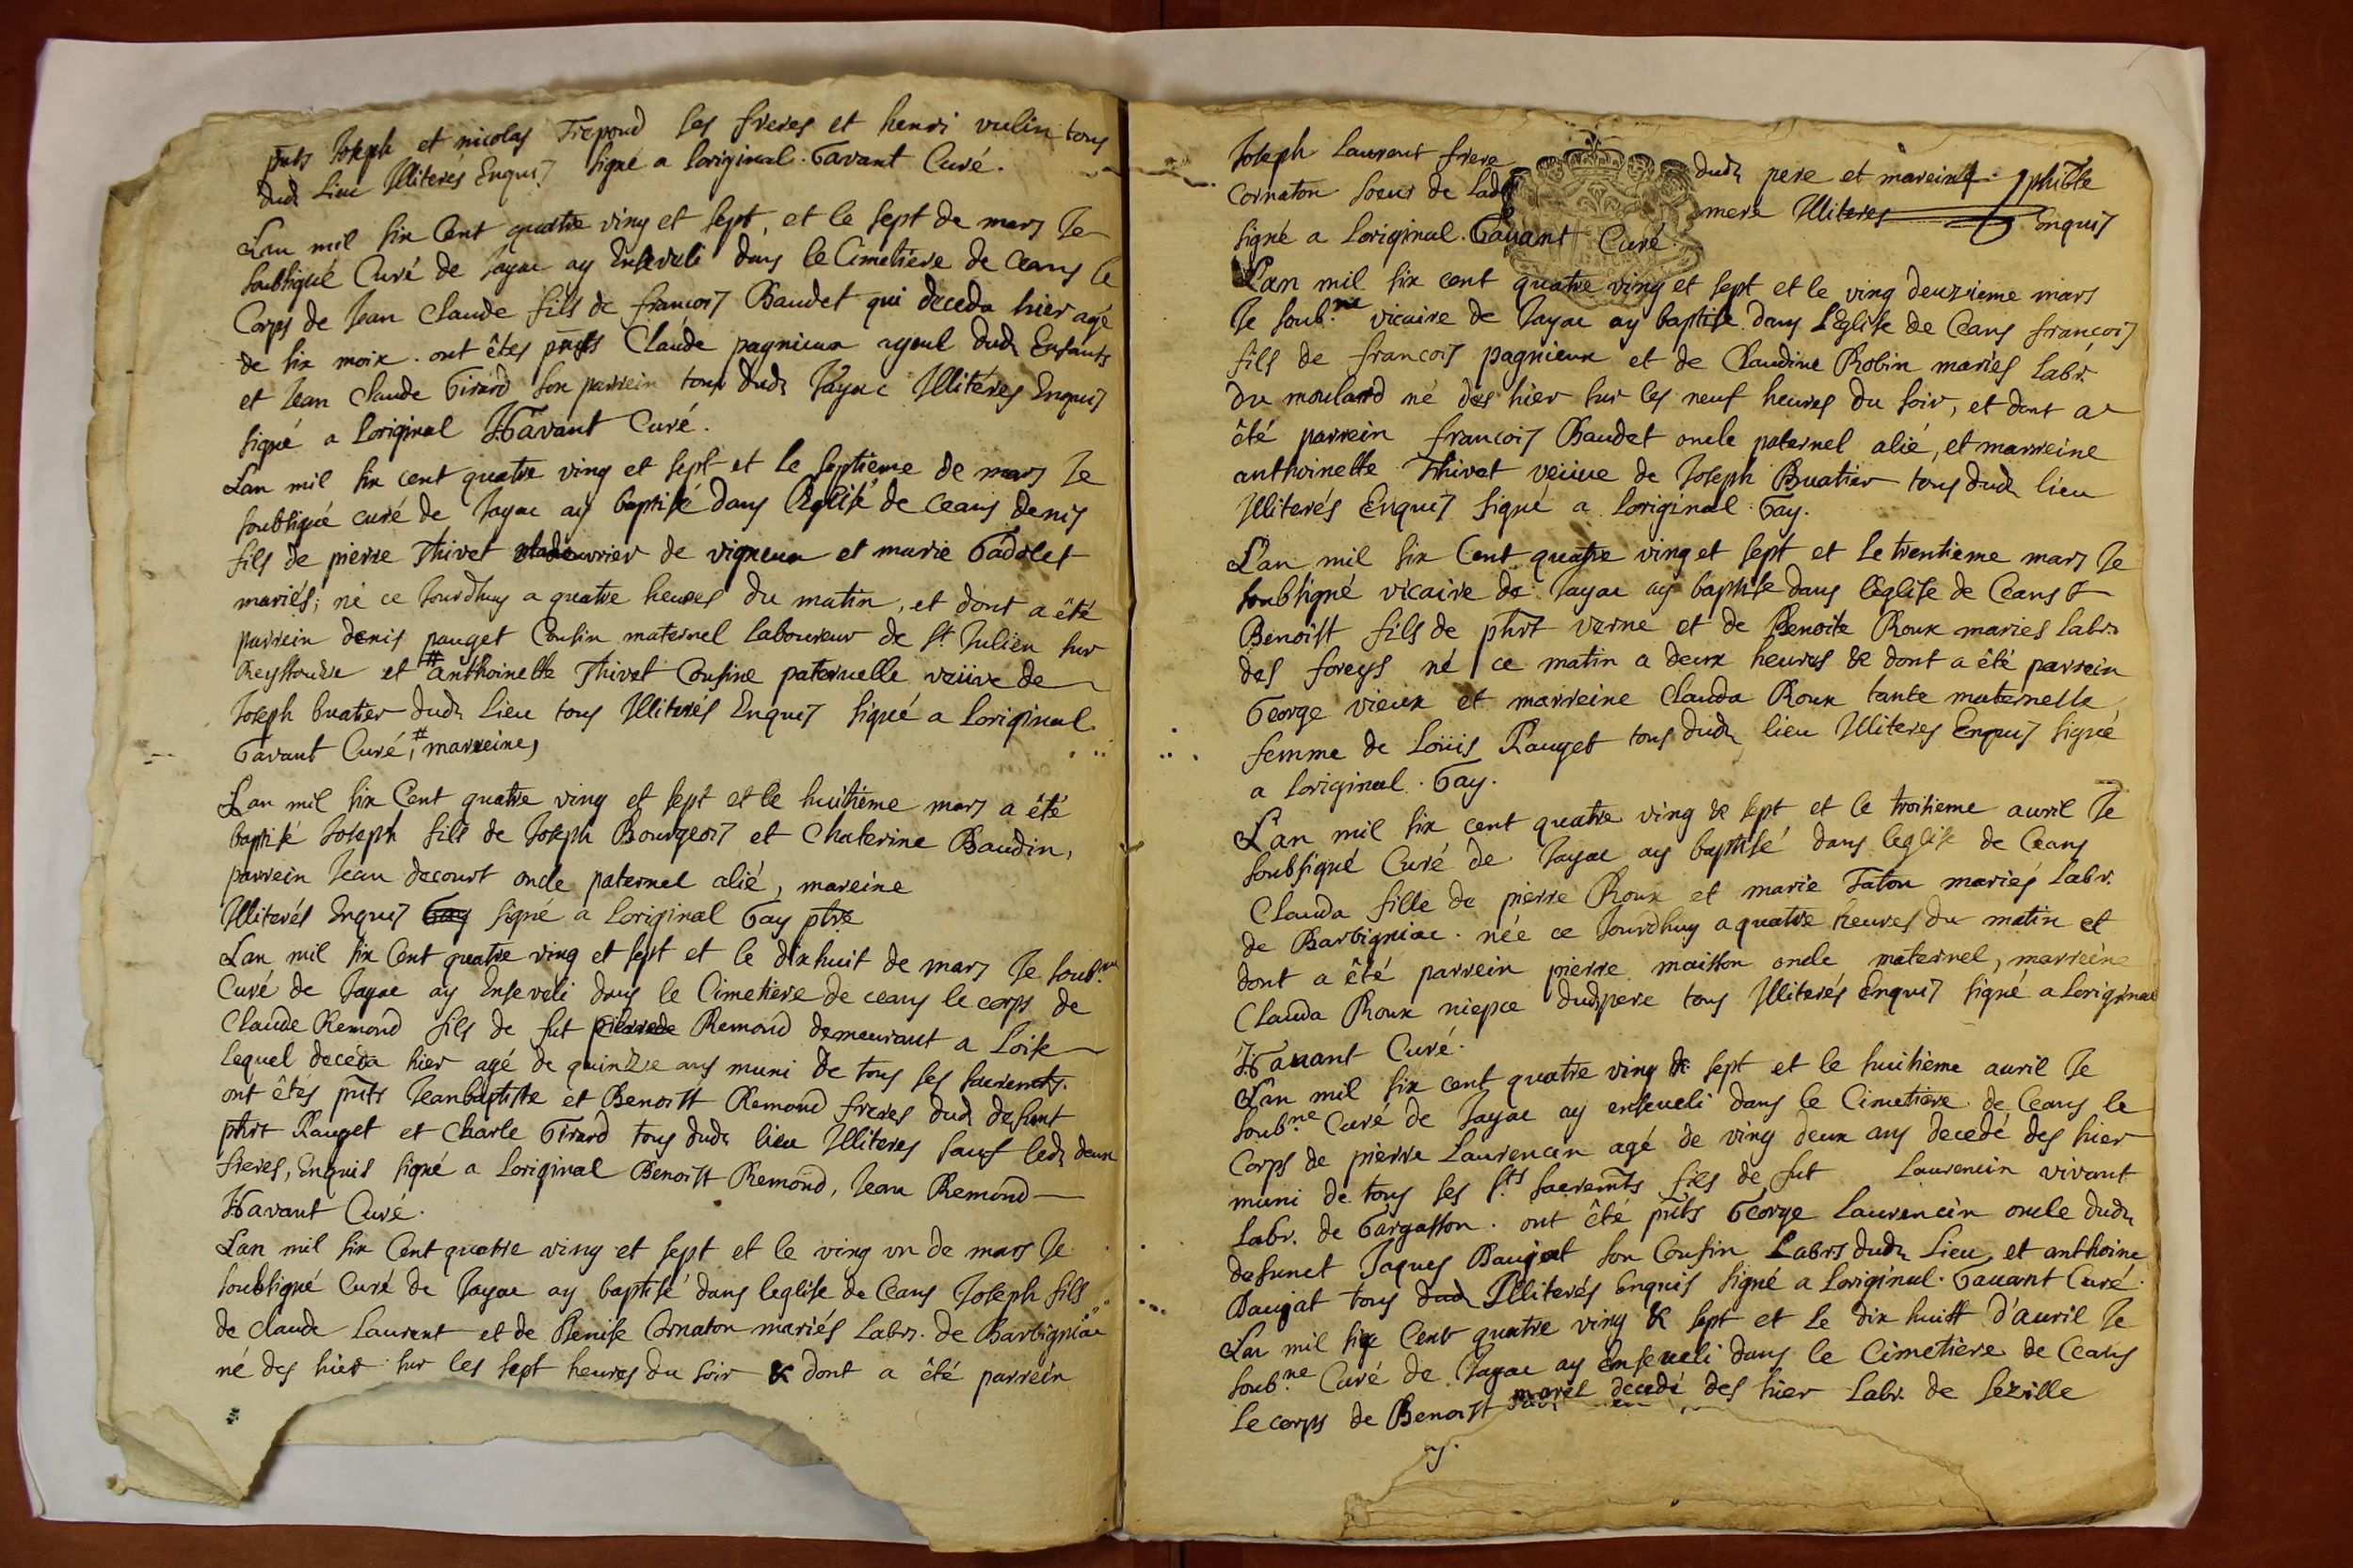 pnts Joseph et nicolas Trepoud ses freres et henri vulin tous
dud. Lieu Illiterés Enquis signé a Loriginal. Gavant Curé.
Lan mil six Cent quatre ving et sept, et le sept de mars Je
soubsigné Curé de Jayac ay Enseveli dans le Cimetiere de Ceans le
Corps de Jean Claude fils de francois Baudet qui deceda hier agé
de six moix. ont êtes pnts Claude pagnieux ayeul dud. Enfants
et Jean Claude Girard son parrein tous dud. Jayac Illitéres Enquis
signé a Loriginal HGavant Curé.
Lan mil six cent quatre ving et sept et le septieme de mars Je
soubsigné curé de Jayac ay baptisé dans l'eglise de Ceans Denis
fils de pierre Thivet de vigneux et marie Gadolet
mariés; né ce Jourdhuy a quatre heures du matin, et dont a été
parrein denis pauget Cousin maternel laboureur de st. Julien sur
Reyssouze et # anthoinette Thivet Cousine paternelle veüive de
Joseph buatier dud. Lieu tous Illiterés Enquis signé a Loriginal
Gavant Curé, # marreine,
Lan mil six Cent quatre ving et sept et le huitiéme mars a été
baptisé Joseph fils de Joseph Bourgeois et Chaterine Baudin,
parrein Jean decourt oncle paternel alié, mareine
Illiterés Enquis Gay signé a Loriginal Gay ptre
Lan mil six Cent quatre ving et sept et le dixhuit de mars Je soub.né
Curé de Jayac ay Enseveli dans le Cimetiere de ceans le corps de
Claude Remond fils de fut Remond demeurant a Loise
lequel deceda hier agé de quinzze ans muni de tous ses sacremts.
ont êtes pnts Jeanbaptiste et Benoist Remond freres dud. defunt
phrt Pauget et Charle Girard tous dud. lieu Illiteres sauf led. deux
freres, Enquis signé a Loriginal Benoist Remond, Jean Remond
HGavant Curé.
Lan mil six Cent quatre ving et sept et le ving vn de mars Je
soubsigné Curé de Jayac ay baptisé dans leglise de Ceans Joseph fils
de claude Laurent et de Denise Cornaton mariés Labrs. de Barbigniac
né des hier sur les sept heures du soir & dont a été parrein
Joseph Laurent frere dud. pere et mareine phibte
Cornaton soeur de Lad. mere Illiteres Enquis
signé a Loriginal. Gavant Curé.
Lan mil six cent quatre ving et sept et le ving deuzieme mars
Je soub.né vicaire de Jayac ay baptise dans L'Eglise de Ceans françois
fils de francois pagnieux et de Claudine Robin mariés Labr.
du moulard né des hier sur les neuf heures du soir, et dont a
été parrein francois Baudet oncle paternel alié, et marreine
anthoinette Thivet veüive de Joseph Buatier tous dud. lieu
Illiterés Enquis signé a Loriginal Gay.
L'an mil six Cent quatre ving et sept et le trentieme mars Je
soubsigné vicaire de Jayac ay baptise dans l'eglise de Ceans
Benoist fils de phrt verne et de Benoite Roux maries Labrs
des foreys né ce matin a deux heures & dont a été parrein
George vieux et marreine Clauda Roux tante maternelle
femme de Loüis Pauget tous dud. lieu Illiteres Enquis signé
a Loriginal. Gay.
L'an mil six cent quatre ving & sept et le troisieme auril Je
soubsigné Curé de Jayac ay baptisé dans leglise de Ceans
Clauda fille de pierre Roux et marie Faton mariés Labr.
de Barbigniac. née ce Jourdhuy a quatre heures du matin et
dont a été parrein pierre maisson oncle maternel, marreine
Clauda Roux niepce dud. pere tous Illiterés Enquis signé a Loriginal
HGauant Curé.
Lan mil six cent quatre ving & sept et le huitième auril Je
Soub.né Curé de Jayac ay enseueli dans le Cimetiere de Ceans le
Corps de pierre Laurencin agé de ving deux ans decedé des hier
muni de tous ses sts sacremts fils de fut Laurencin vivant
Labr. de Gargasson. ont été pnts George Laurencin oncle dud.
defunct Jaques Baujat son Cousin Labrs dud. Lieu, et anthoine
Baujat tous dud. Illiterés Enquis signé a Loriginal. Gauant Curé.
Lan mil six Cent quatre ving & sept et le dix huist d'auril Je
soub.né Curé de Jayac ay Enseueli dans le Cimetiere de Ceans
Le corps de Benoist morel decedé des hier Labr. de Sezille